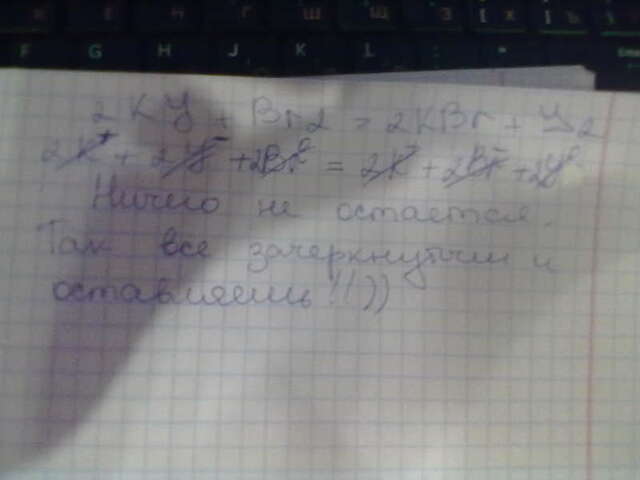 Ш Щ З Х Ъ
F G H J K L : "
2КУ + Br2 = 2KBr + У2
2К⁺ + 2У⁻ + 2Br⁰ = 2К⁺ + 2Br⁻ + 2У⁰
Ничего не остается.
Так все зачеркнутым и
оставляешь!!))